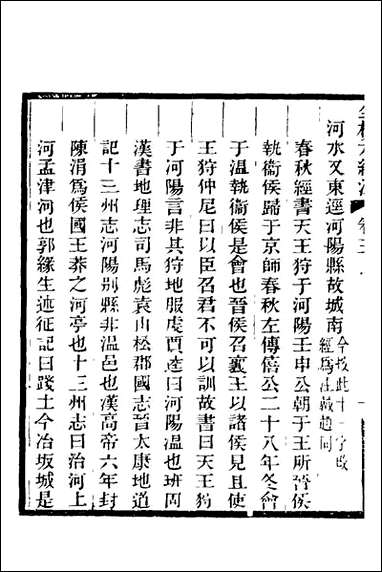 河水又東逕河陽縣故城南今校此十一字改
經爲注戴趙同
春秋經書天王狩于河陽壬申公朝于王所晉侯
執衞侯歸于京師春秋左傳僖公二十八年冬會
于溫執衞侯是會也晉侯召襄王以諸侯見且使
王狩仲尼曰以臣召君不可以訓故書曰天王狩
于河陽言非其狩地服虔賈逵曰河陽溫也班固
漢書地理志司馬彪袁山松郡國志晉太康地道
記十三州志河陽別縣非溫邑也漢高帝六年封
陳涓爲侯國王莽之河亭也十三州志曰治河上
河孟津河也郭緣生述征記曰踐土今冶坂城是